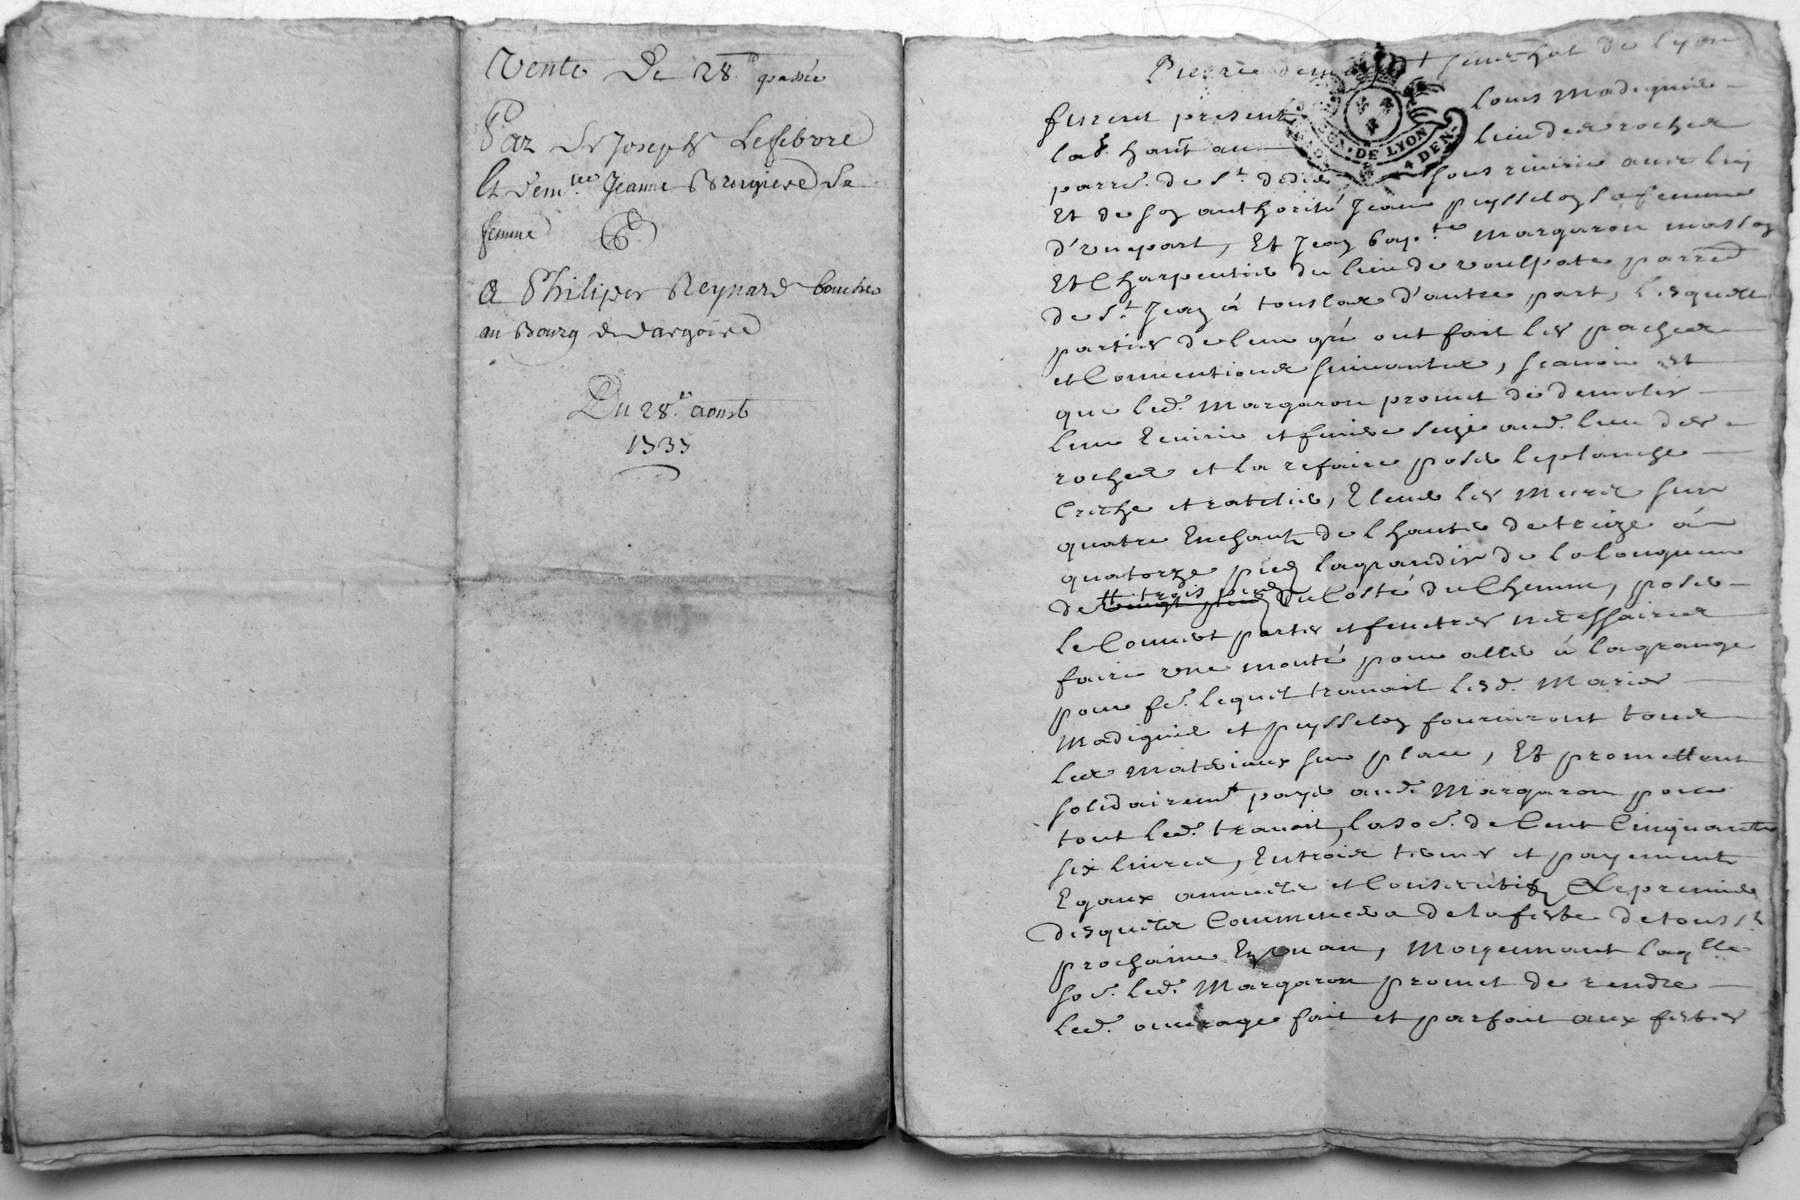 Vente De 28.te passée
Par Sr Joseph Lefebvre
Et Dem.lle Jeanne Brugiere Sa
femme
A Philiper Reynard boucher
au Bourg de dargoire
Du 28.e aoust
1735
de Lyon
furent present Louis Madignier
lab.r hant au lieu des roches
parr.e de S.t didier sous riverie aucth
Et de soy authorité Jeanne puysseloz sa femme
d'vne part, Et Jean bap.te Margaron masson
Et Charpentier du lieu de parr.e
de S.t Jean à touslas d'autre part, lesquelles
parties de leur gré ont fait les paches
et Conventions suivantes, scavoir est
que led. Margaron promet de demolir
leur Ecurie et size aud. lieu des
roches et la refaire poser le planche
Criche et ratelier, Elever les Murs sur
quatre de l hauts de treize à
quatorze pieds lagrandir de la longueur
de trois pieds du Costé du Chemin, poser
le Couvert portes et fenetres necessaires
faire vne monté pour aller à lagrange
pour f.e lequel travail lesd. Maries
Madignier et puysseloz fourniront tous
les Materiaux sur place, Et promettent
solidairem.t payer aud. Margaron pour
tout led. travail, la so.e de Cent Cinquante
six livres, En trois termes et payements
Egaux annuels et Consecutifs Le premier
desquels Commencera de la feste de touss.ts
prochaine En vn an, Moyennant laq.lle
so.e led. Margaron promet de rendre
led. ouvrage fait et parfait aux festes
DE LYON
4 DEN.